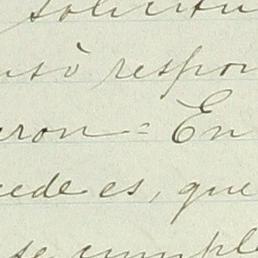 solicitu
usò respon
eron = En
cede es, que
se cumple